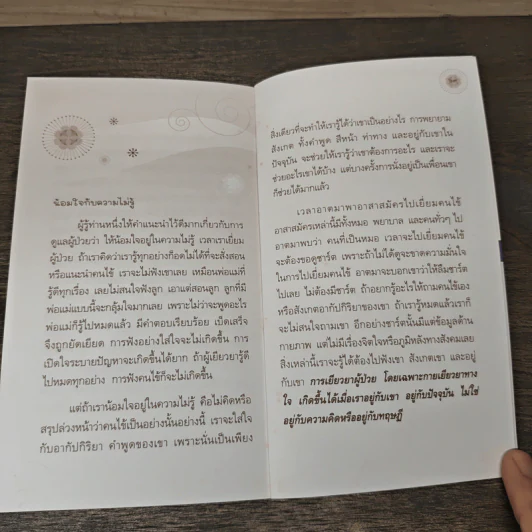 น้อมใจกับความไม่รู้
ผู้รู้ท่านหนึ่งให้คำแนะนำไว้ดีมากเกี่ยวกับการ
ดูแลผู้ป่วยว่า ให้น้อมใจอยู่ในความไม่รู้ เวลาเราเยี่ยม
ผู้ป่วย ถ้าเราคิดว่าเรารู้ทุกอย่างก็อดไม่ได้ที่จะสั่งสอน
หรือแนะนำคนไข้ เราจะไม่ฟังเขาเลย เหมือนพ่อแม่ที่
รู้ดีทุกเรื่อง เลยไม่สนใจฟังลูก เอาแต่สอนลูก ลูกที่มี
พ่อแม่แบบนี้จะกลุ้มใจมากเลย เพราะไม่ว่าจะพูดอะไร
พ่อแม่ก็รู้ไปหมดแล้ว มีคำตอบเรียบร้อย เบ็ดเสร็จ
จึงถูกยัดเยียด การฟังอย่างใส่ใจจะไม่เกิดขึ้น การ
เปิดใจระบายปัญหาจะเกิดขึ้นได้ยาก ถ้าผู้เยียวยารู้ดี
ไปหมดทุกอย่าง การฟังคนไข้ก็จะไม่เกิดขึ้น
แต่ถ้าเราน้อมใจอยู่ในความไม่รู้ คือไม่คิดหรือ
สรุปล่วงหน้าว่าคนไข้เป็นอย่างนั้นอย่างนี้ เราจะใส่ใจ
กับอากัปกิริยา คำพูดของเขา เพราะนั่นเป็นเพียง
สิ่งเดียวที่จะทำให้เรารู้ได้ว่าเขาเป็นอย่างไร การพยายาม
สังเกต ทั้งคำพูด สีหน้า ท่าทาง และอยู่กับเขาใน
ปัจจุบัน จะช่วยให้เรารู้ว่าเขาต้องการอะไร และเราจะ
ช่วยอะไรเขาได้บ้าง แต่บางครั้งการนั่งอยู่เป็นเพื่อนเขา
ก็ช่วยได้มากแล้ว
เวลาอาตมาพาอาสาสมัครไปเยี่ยมคนไข้
อาสาสมัครเหล่านี้มีทั้งหมอ พยาบาล และคนทั่วๆ ไป
อาตมาพบว่า คนที่เป็นหมอ เวลาจะไปเยี่ยมคนไข้
จะต้องขอดูชาร์ต เพราะถ้าไม่ได้ดูจะขาดความมั่นใจ
ในการไปเยี่ยมคนไข้ อาตมาจะบอกเขาว่าให้ลืมชาร์ต
ไปเลย ไม่ต้องมีชาร์ต ถ้าอยากรู้อะไรให้ถามคนไข้เอง
หรือสังเกตอากัปกิริยาของเขา ถ้าเรารู้หมดแล้วเราก็
จะไม่สนใจถามเขา อีกอย่างชาร์ตนั้นมีแต่ข้อมูลด้าน
กายภาพ แต่ไม่มีเรื่องจิตใจหรือภูมิหลังทางสังคมเลย
สิ่งเหล่านี้เราจะรู้ได้ต้องไปฟังเขา สังเกตเขา และอยู่
กับเขา การเยียวยาผู้ป่วย โดยเฉพาะการเยียวยาทาง
ใจ เกิดขึ้นได้เมื่อเราอยู่กับเขา อยู่กับปัจจุบัน ไม่ใช่
อยู่กับความคิดหรืออยู่กับทฤษฎี